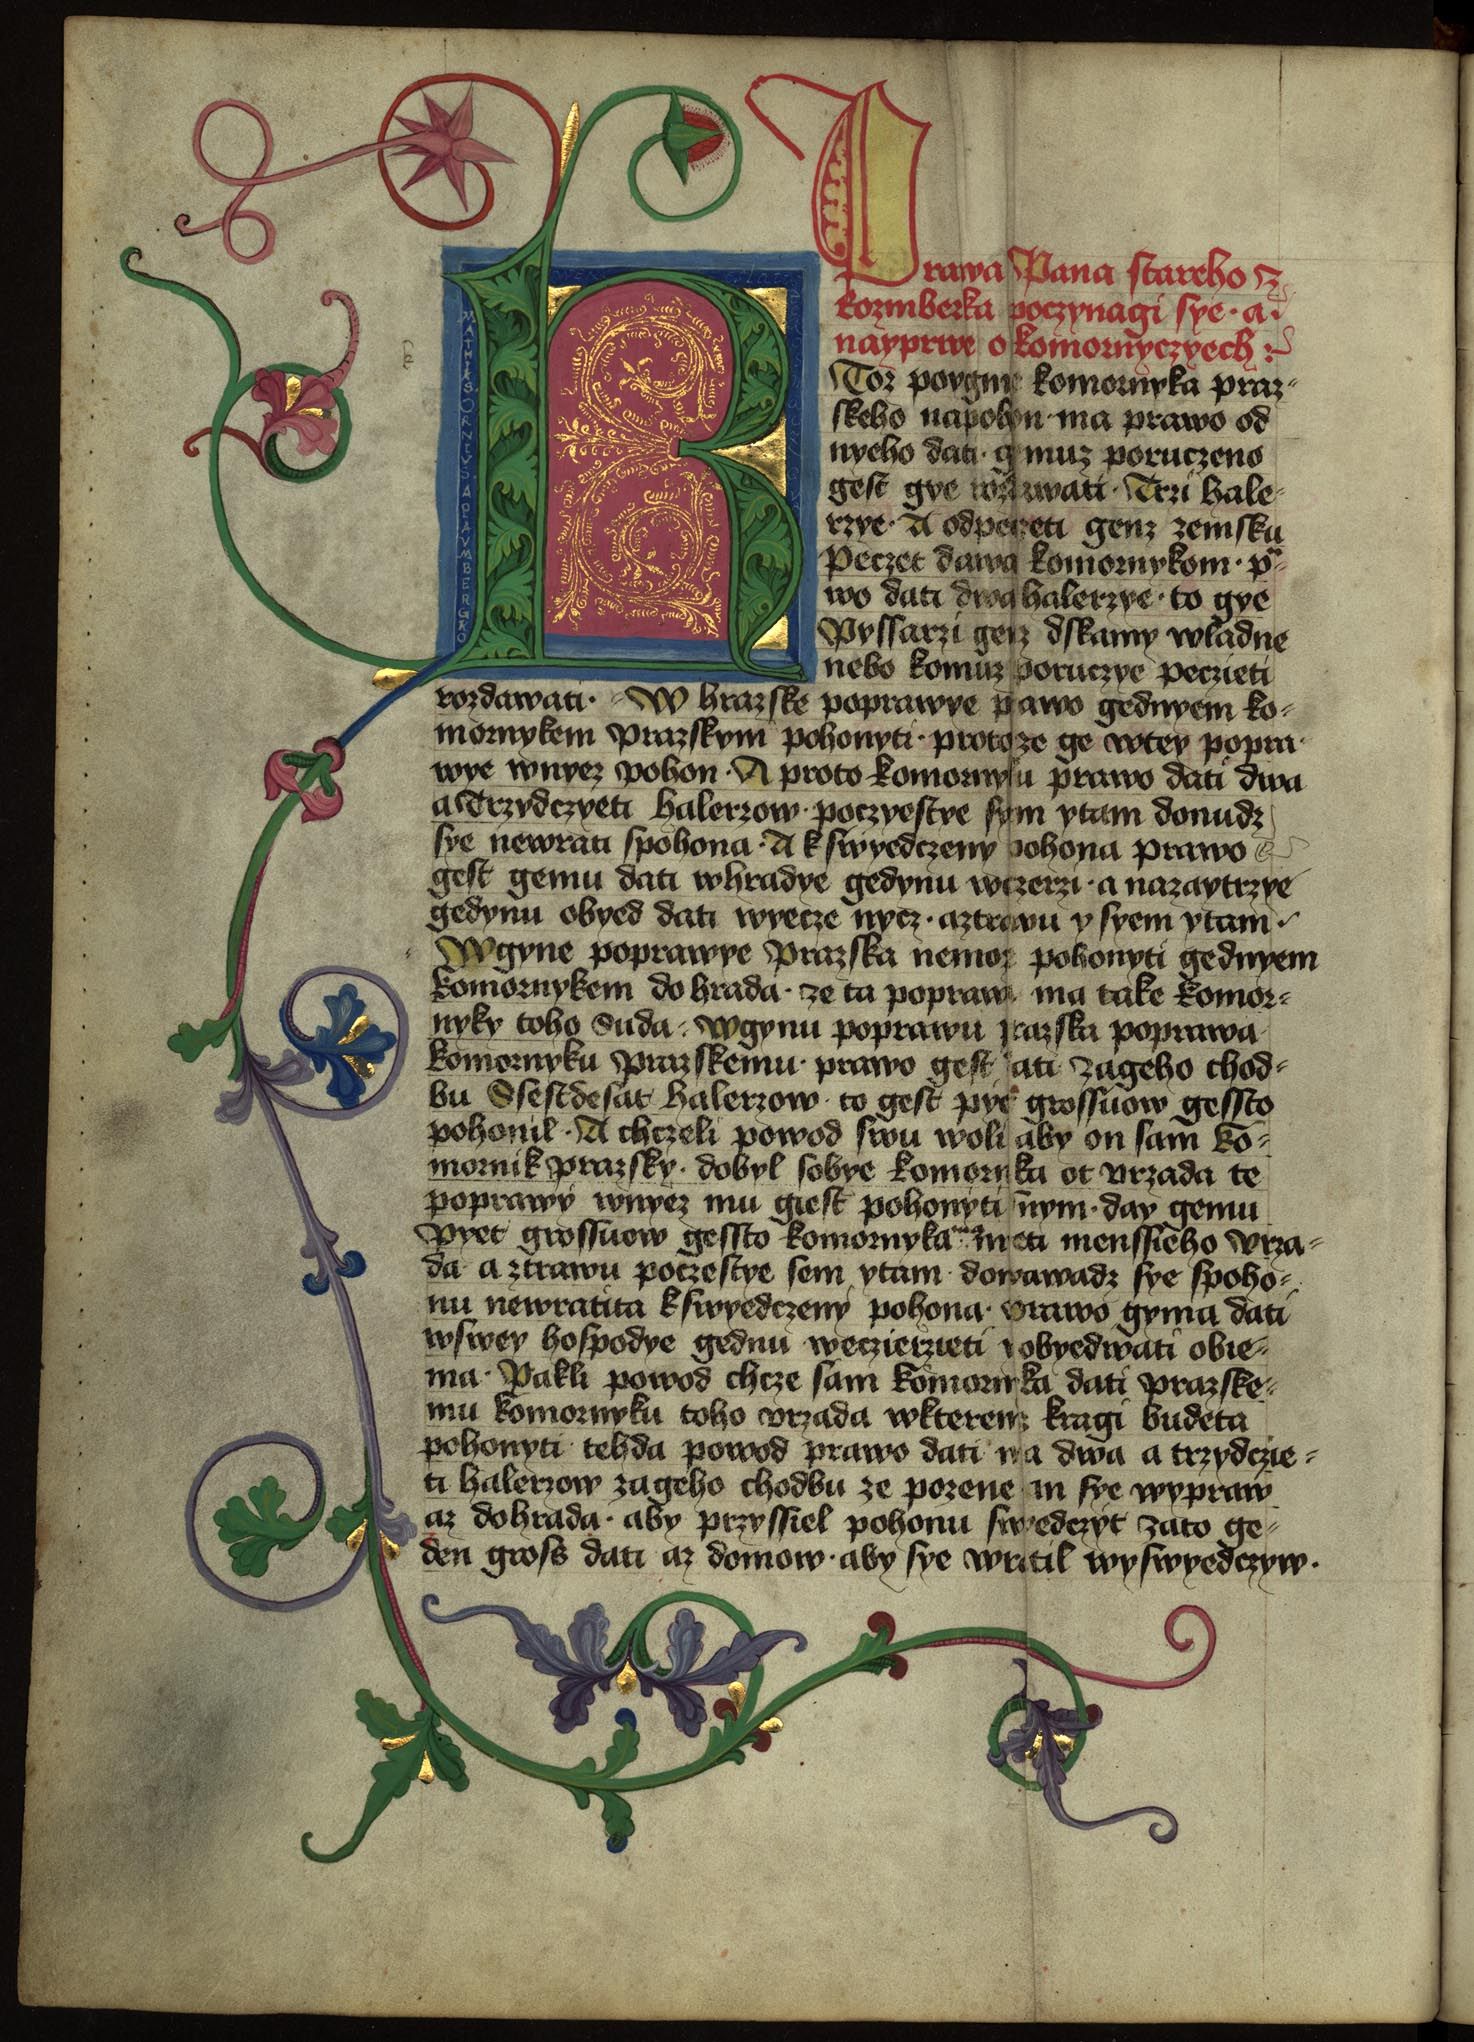 MATHIAS ORNIVS A PAVMBERGKO
Prawa Pana stareho z
Rozmberka poczynagi sye · a ·
nayprwe o komornyczyech :
KToz poygme komornyka praz-
skeho napohon · ma prawo od
nyeho dati · gemuz poruczeno
gest gye wzdawati · Trzi hale-
rzye · A odpeczeti genz zemska
Peczet dawa komornykom · pra-
wo dati dwa halerzye · to gye
Pyssarzi genz dskamy wladne
nebo komuz poruczye peczieti
rozdawati · W hrazske poprawye prawo gednyem ko-
mornykem Prazskym pohonyti · protoze ge wtey popra
wye wnyez pohon · A proto komornyku prawo dati dwa
a Trzydczyeti halerzow · poczyestye sym ytam donudz
sye newrati spohona · A k swyedczeny pohona prawo
gest gemu dati whradye gedynu wczerzi · a nazaytrzye
gedynu obyed dati wyecze nycz · aztrawu y syem ytam ·
Wgyne poprawye Prazska nemoz pohonyti gednyem
komornykem do hrada · ze ta poprawa ma take komor-
nyky toho Suda · Wgynu poprawu prazska poprawa
komornyku Prazskemu · prawo gest dati zageho chod-
bu Ssestdesat halerzow · to gest pyet grossuow gessto
pohonil · A chczeli powod swu woli aby on sam ko-
mornik prazsky · dobyl sobye komornyka ot vrzada te
poprawy wnyez mu giest pohonyti nym · day gemu
Pyet grossuow gessto komornyka ma mieti menssieho vrza-
da a ztrawu poczestye sem ytam dowawadz sye spoho-
nu newratita k swyedczeny pohona · prawo gyma dati
wswey hospodye gednu weczierzieti yobyedwati obie-
ma · Pakli powod chcze sam komornyka dati prazske-
mu komornyku toho vrzada wkterem kragi budeta
pohonyti tehda powod prawo dati ma dwa a trzydczie-
ti halerzow zageho chodbu ze pozene an sye wypraw
az dohrada · aby przyssiel pohonu swedczyt zato ge-
den gross dati az domow · aby sye wratil wyswyedczyw ·